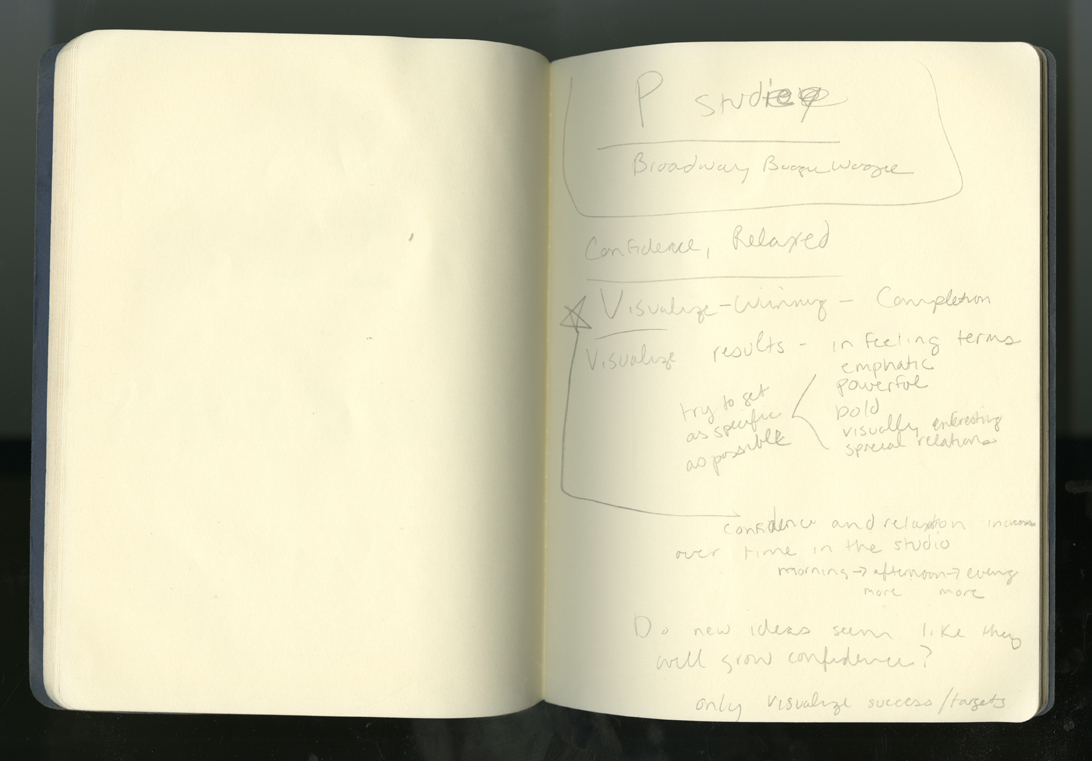 P Study
Broadway Boogie Woogie
Confidence, Relaxed
Visualize - winning - Completion
Visualize results - in feeling terms
emphatic
powerful
bold
visually interesting
special relations
try to get
as specific
as possible
confidence and relaxation increase
over time in the studio
morning → afternoon → evening
more more
Do new ideas seem like they
will grow confidence?
only visualize success/targets